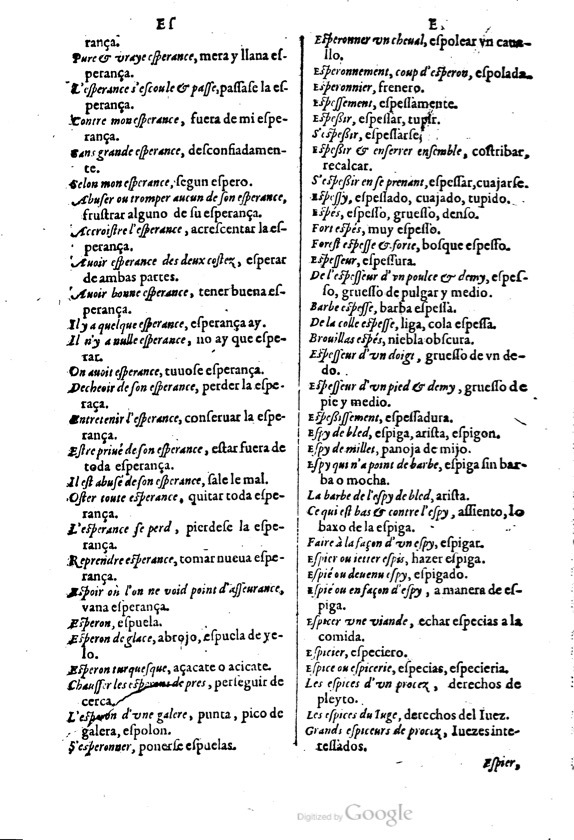 Eſ
rança.
Pure & vraye eſperance, mera y llana eſ-
perança.
L'eſperance s'eſcoule & paſſe, paſſaſe la eſ-
perança.
Contre mon eſperance, fuera de mi eſpe-
rança.
Sans grande eſperance, deſconfiadamen-
te.
Selon mon eſperance, ſegun eſpero.
Abuſer ou tromper aucun de ſon eſperance,
fruſtrar alguno de ſu eſperança.
Accroiſtre l'eſperance, acreſcentar la eſ-
perança.
Auoir eſperance des deux coſtez, eſperar
de ambas partes.
Auoir bonne eſperance, tener buena eſ-
perança.
Il y a quelque eſperance, eſperança ay.
Il n'y a nulle eſperance, no ay que eſpe-
rar.
On auoit eſperance, tuuoſe eſperança.
Decheoir de ſon eſperance, perder la eſpe-
raça.
Entretenir l'eſperance, conſeruar la eſpe-
rança.
Eſtre priué de ſon eſperance, eſtar fuera de
toda eſperança.
Il eſt abuſé de ſon eſperance, ſale le mal.
Oſter toute eſperance, quitar toda eſpe-
rança.
L'esperance ſe perd, pierdeſe la eſpe-
rança.
Reprendre esperance, tomar nueua eſpe-
rança.
Espoir où l'on ne void point d'aſſeurance,
vana eſperança.
Esperon, eſpuela.
Esperon de glace, abrojo, eſpuela de ye-
lo.
Esperon turqueſque, açacate o acicate.
Chauſſer les esperons de pres, perſeguir de
cerca.
L'esperon d'vne galere, punta, pico de
galera, eſpolon.
S'esperonner, ponerſe eſpuelas.
E
Esperonner vn cheual, eſpolear vn caua-
llo.
Esperonnement, coup d'esperon, eſpolada.
Esperonnier, frenero.
Eſpeſſement, eſpeſſamente.
Eſpeßir, eſpeſſar, tupir.
S'eſpeßir, eſpeſſarſe,
Eſpeßir & enſerrer enſemble, coſtribar,
recalcar.
S'eſpeßir en ſe prenant, eſpeſſar, cuajarſe.
Eſpeſſy, eſpeſſado, cuajado, tupido.
Eſpés, eſpeſſo, grueſſo, denſo.
Fort eſpés, muy eſpeſſo.
Foreſt eſpeſſe & forte, boſque eſpeſſo.
Eſpeſſeur, eſpeſſura.
De l'eſpeſſeur d'vn poulce & demy, eſpeſ-
ſo, grueſſo de pulgar y medio.
Barbe eſpeſſe, barba eſpeſſa.
De la colle eſpeſſe, liga, cola eſpeſſa.
Brouillas eſpés, niebla obſcura.
Eſpeſſeur d'vn doigt, grueſſo de vn de-
do.
Eſpeſſeur d'vn pied & demy, grueſſo de
pie y medio.
Eſpeßiſſement, eſpeſſadura.
Eſpy de bled, eſpiga, ariſta, eſpigon.
Eſpy de millet, panoja de mijo.
Eſpy qui n'a point de barbe, eſpiga ſin bar-
ba o mocha.
La barbe de l'eſpy de bled, ariſta.
Ce qui eſt bas & contre l'eſpy, aſſiento, lo
baxo de la eſpiga.
Faire à la façon d'vn eſpy, eſpigar.
Eſpier ou ietter eſpis, hazer eſpiga.
Eſpié ou deuenu eſpy, eſpigado.
Eſpié ou en façon d'eſpy, a manera de eſ-
piga.
Eſpicer vne viande, echar eſpecias a la
comida.
Eſpicier, eſpeciero.
Eſpice ou eſpicerie, eſpecias, eſpecieria.
Les eſpices d'vn procez, derechos de
pleyto.
Les eſpices du Iuge, derechos del Iuez.
Grands eſpiceurs de procez, Iuezes inte-
reſſados.
Eſpier,
Digitized by Google